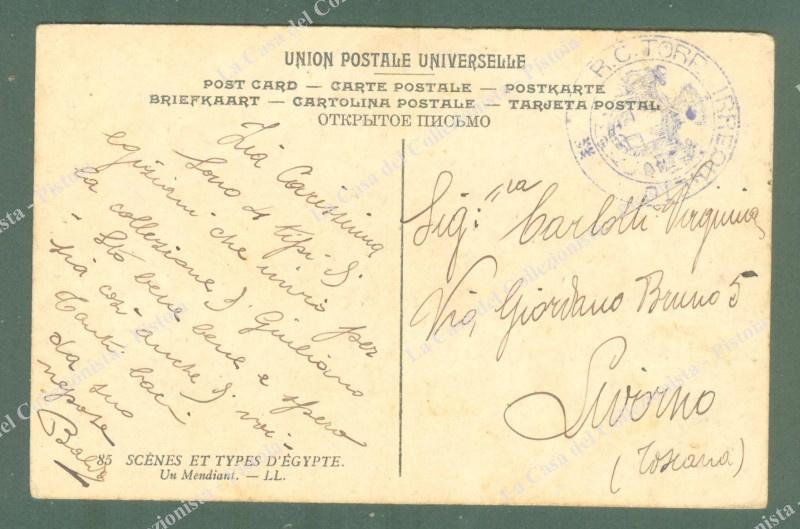 UNION POSTALE UNIVERSELLE
POST CARD — CARTE POSTALE — POSTKARTE
BRIEFKAART — CARTOLINA POSTALE — TARJETA POSTAL
ОТКРЫТОЕ ПИСЬМО
Zia Carissima
Sono 4 tipi di
egiziani che invio per
la collezione di Giuliano
- Sto bene bene e spero
sia così anche di voi -
Tanti baci
da suo
nepote
Sig:ra Carlotti Virginia
Via Giordano Bruno 5
Livorno
(Toscana)
R.C. TORP. IRREQUIETO
85 SCÈNES ET TYPES D'ÉGYPTE.
Un Mendiant. — LL.
La Casa del Collezionista - Pistoia